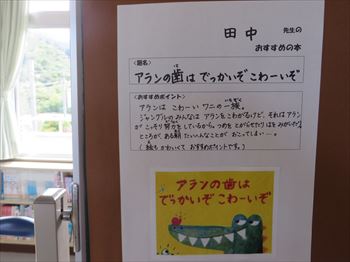 田中 先生の
おすすめの本
<題名>
アランの歯は でっかいぞ こわーいぞ
<おすすめポイント>
アランは こわーい ワニの一族。
ジャングルのみんなは アランをこわがるけど、それは アラン
が こっそり努力をしているから。つめを とがらせたり はを みがいたり。
ところが、ある朝 たいへんなことが おこってしまい…。
(絵も かわいくて おすすめポイントです。)
アランの歯は
でっかいぞ こわーいぞ